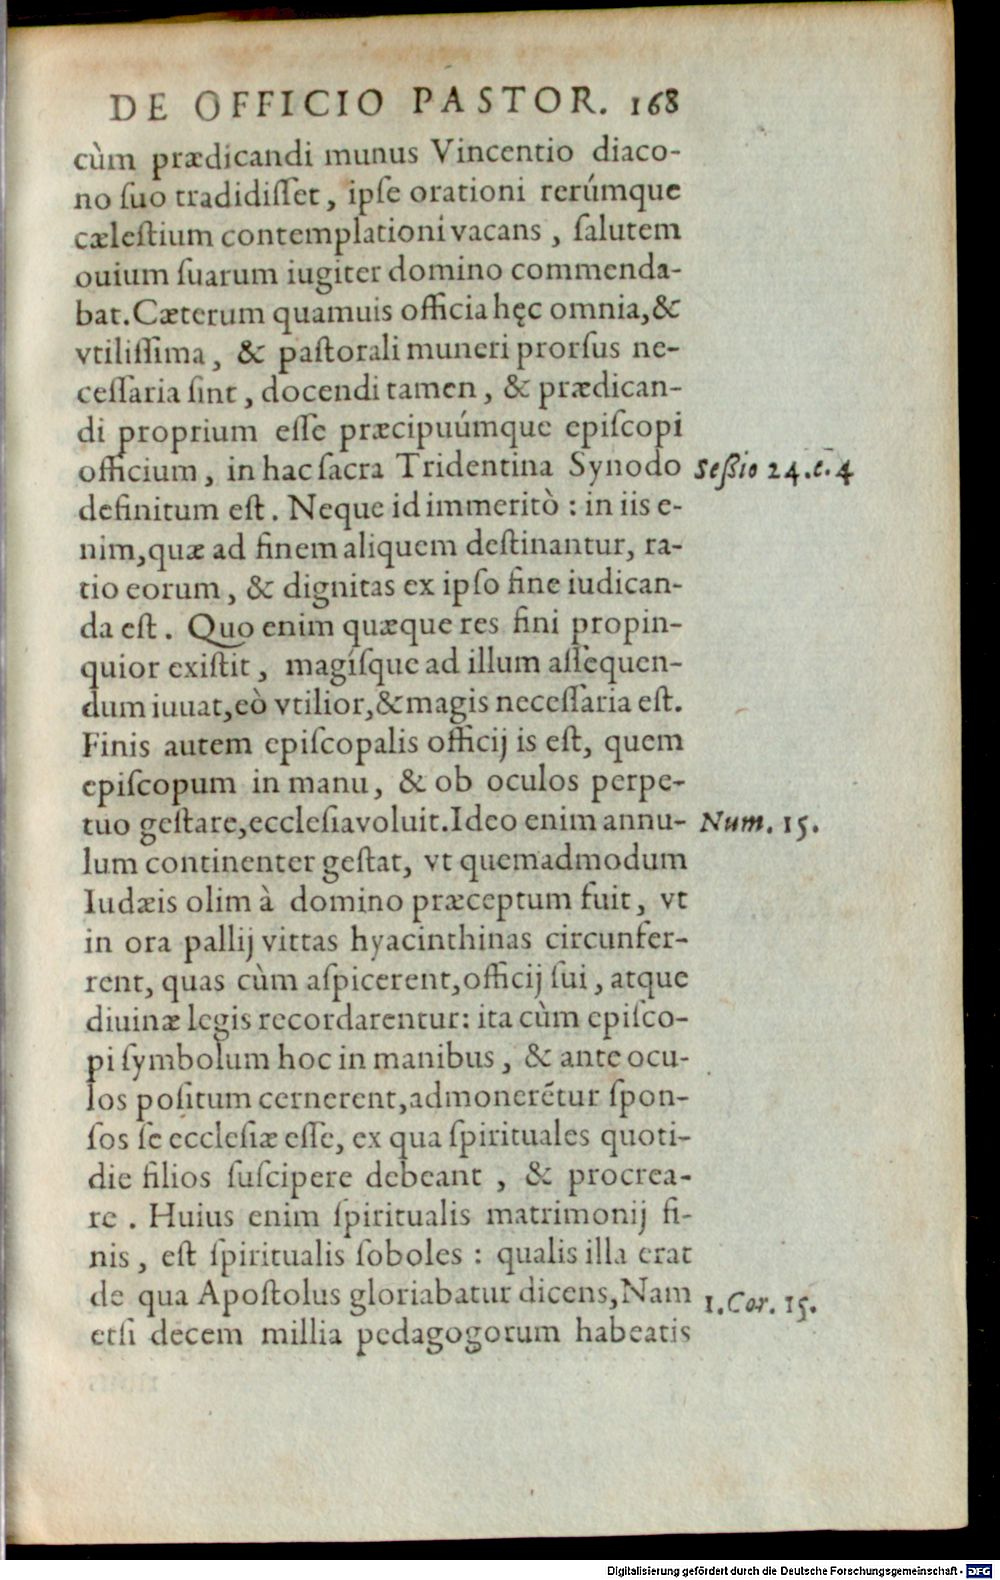 DE OFFICIO PASTOR. 168
cùm prædicandi munus Vincentio diaco-
no ſuo tradidiſſet, ipſe orationi rerúmque
cæleſtium contemplationi vacans, ſalutem
ouium ſuarum iugiter domino commenda-
bat. Cæterum quamuis officia hęc omnia, &
vtiliſſima, & paſtorali muneri prorſus ne-
ceſſaria ſint, docendi tamen, & prædican-
di proprium eſſe præcipuúmque epiſcopi
officium, in hac ſacra Tridentina Synodo Seßio 24. c. 4
definitum eſt. Neque id immeritò: in iis e-
nim, quæ ad finem aliquem deſtinantur, ra-
tio eorum, & dignitas ex ipſo fine iudican-
da eſt. Quo enim quæque res fini propin-
quior exiſtit, magíſque ad illum aſſequen-
dum iuuat, eò vtilior, & magis neceſſaria eſt.
Finis autem epiſcopalis officij is eſt, quem
epiſcopum in manu, & ob oculos perpe-
tuo geſtare, eccleſia voluit. Ideo enim annu- Num. 15.
lum continenter geſtat, vt quemadmodum
Iudæis olim à domino præceptum fuit, vt
in ora pallij vittas hyacinthinas circunfer-
rent, quas cùm aſpicerent, officij ſui, atque
diuinæ legis recordarentur: ita cùm epiſco-
pi ſymbolum hoc in manibus, & ante ocu-
los poſitum cernerent, admonerētur ſpon-
ſos ſe eccleſiæ eſſe, ex qua ſpirituales quoti-
die filios ſuſcipere debeant, & procrea-
re. Huius enim ſpiritualis matrimonij fi-
nis, eſt ſpiritualis ſoboles: qualis illa erat
de qua Apoſtolus gloriabatur dicens, Nam 1. Cor. 15.
etſi decem millia pedagogorum habeatis
Digitalisierung gefördert durch die Deutsche Forschungsgemeinschaft - DFG